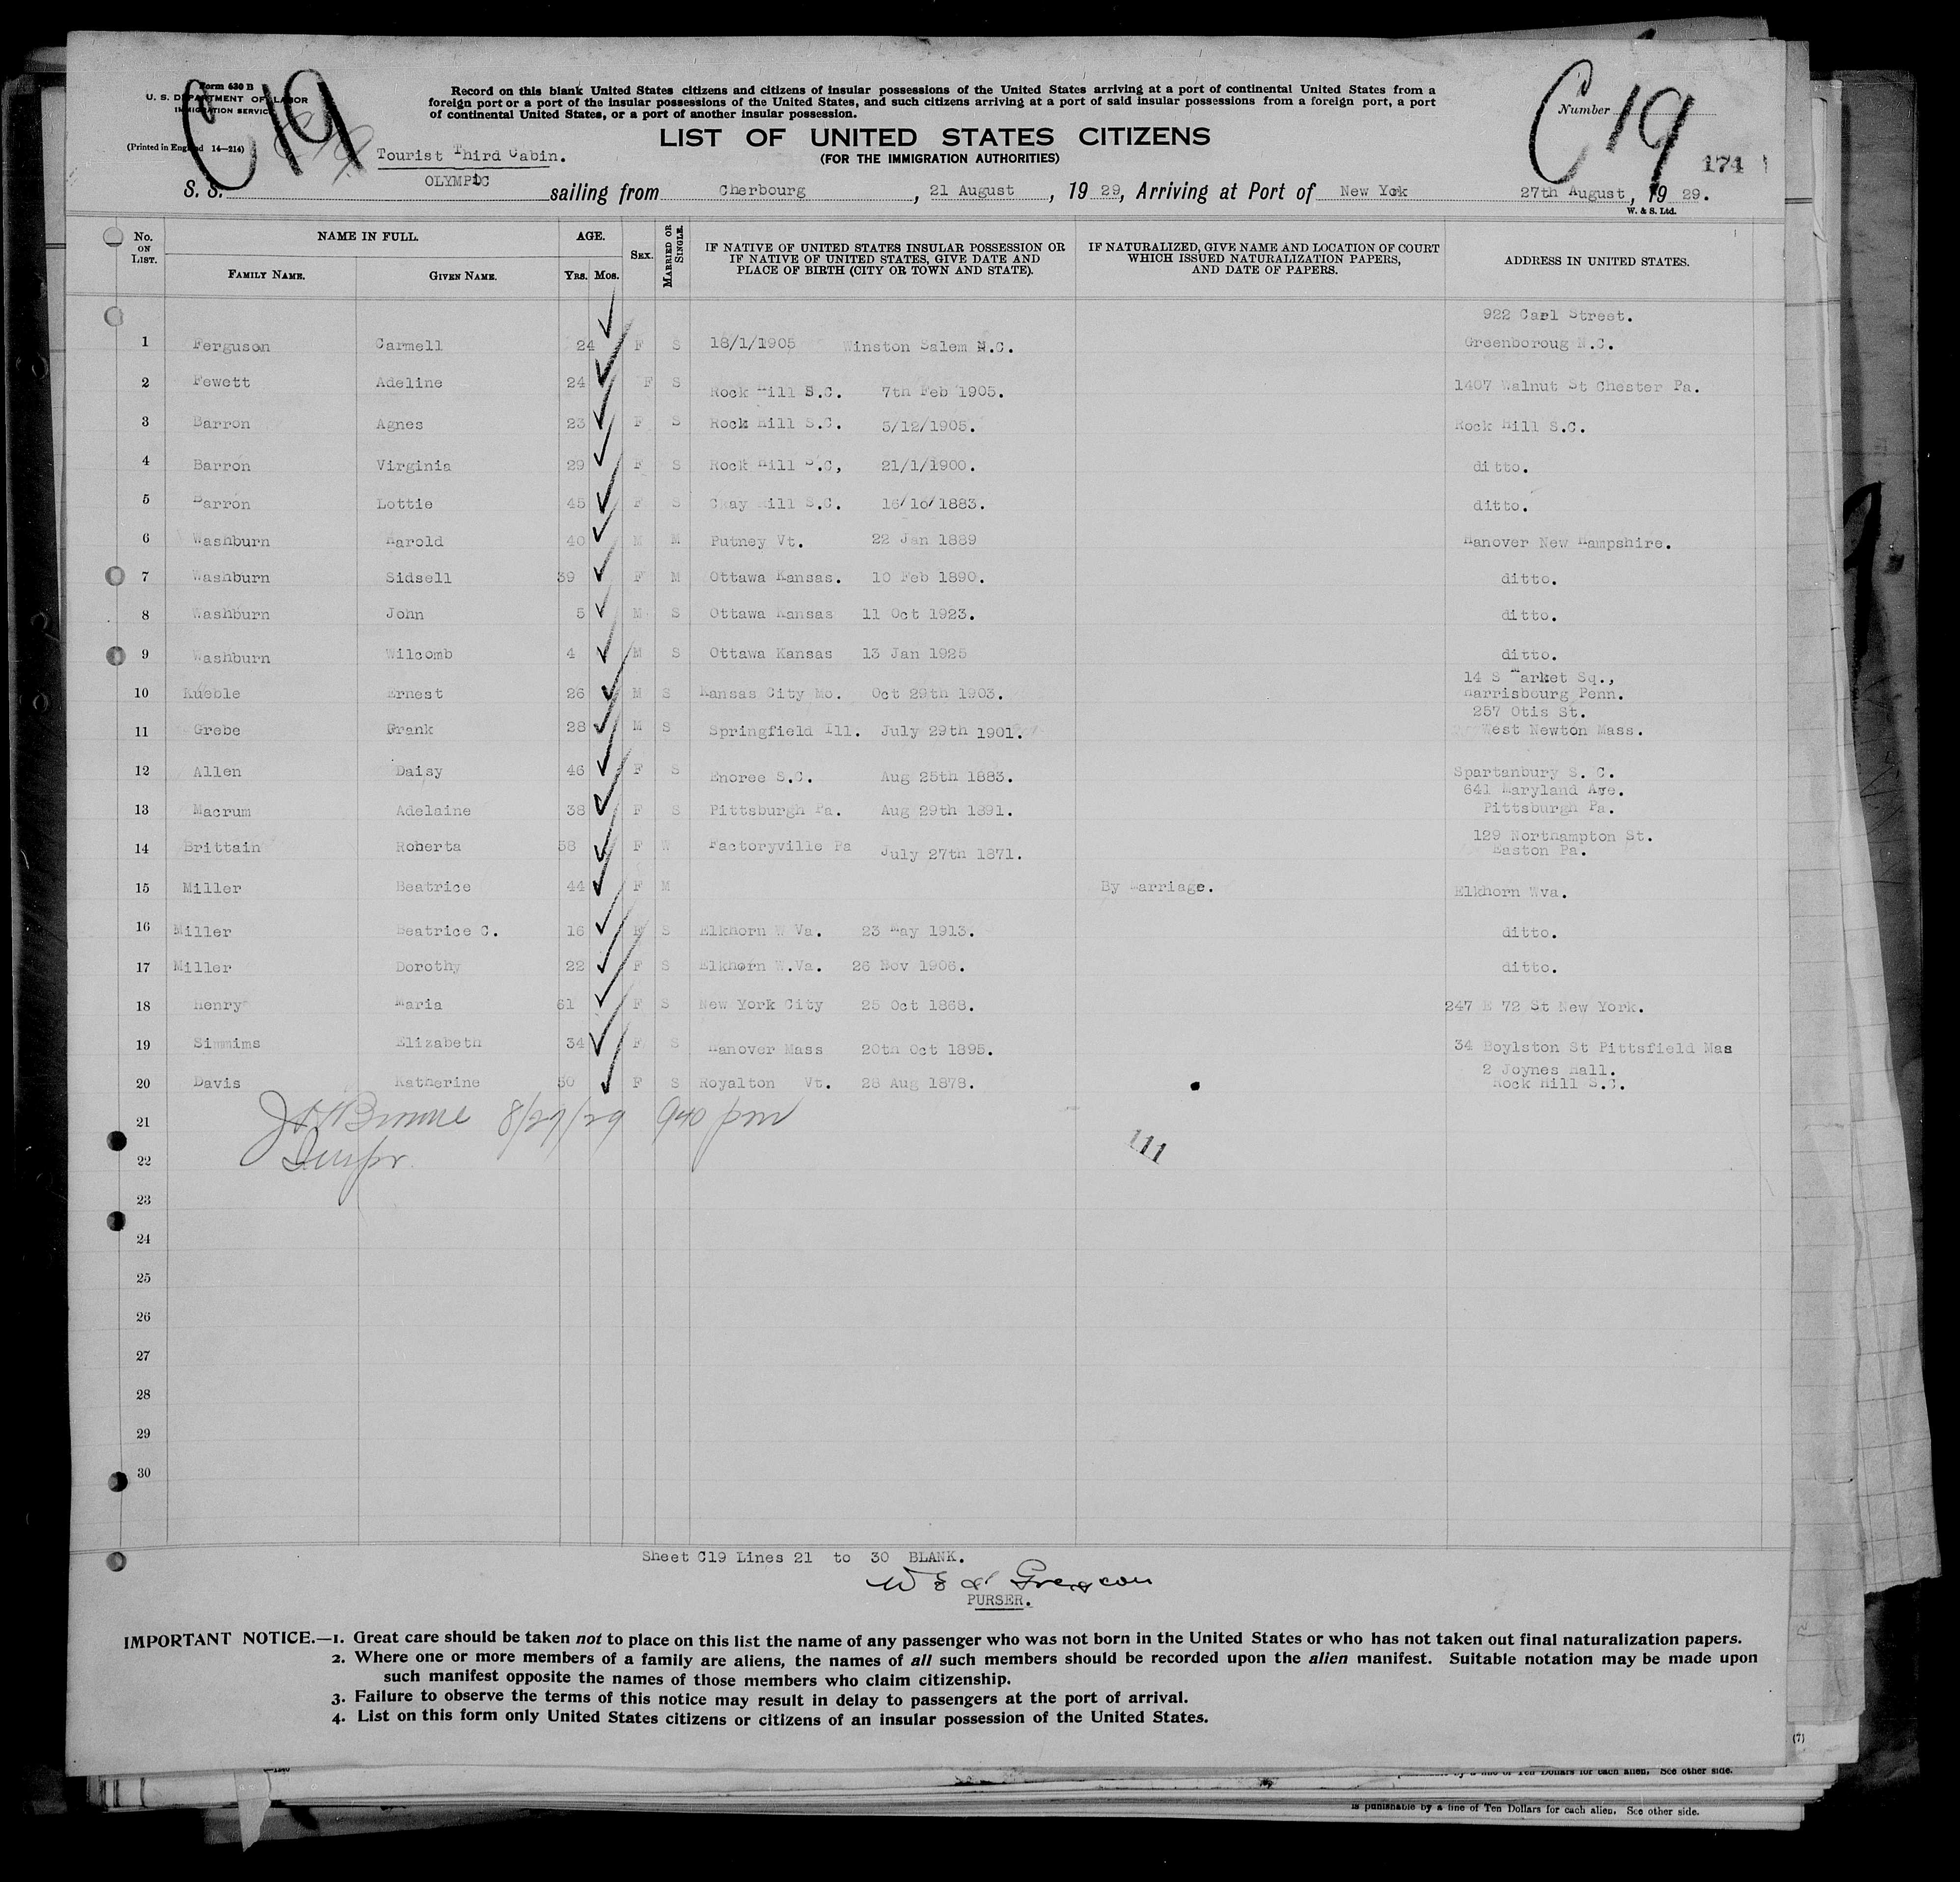 Form 630 B
U. S. DEPARTMENT OF LABOR
IMMIGRATION SERVICE
(Printed in England 14—214)
C19
C19
Record on this blank United States citizens and citizens of insular possessions of the United States arriving at a port of continental United States from a
foreign port or a port of the insular possessions of the United States, and such citizens arriving at a port of said insular possessions from a foreign port, a port
of continental United States, or a port of another insular possession.
LIST OF UNITED STATES CITIZENS
(FOR THE IMMIGRATION AUTHORITIES)
Number
174
Tourist Third Cabin.
S. S. OLYMPIC sailing from Cherbourg, 21 August, 19 29, Arriving at Port of New York 27th August, 19 29.
W. & S. Ltd.
No. ON LIST. NAME IN FULL. AGE. SEX. MARRIED OR SINGLE. IF NATIVE OF UNITED STATES INSULAR POSSESSION OR IF NATIVE OF UNITED STATES, GIVE DATE AND PLACE OF BIRTH (CITY OR TOWN AND STATE). IF NATURALIZED, GIVE NAME AND LOCATION OF COURT WHICH ISSUED NATURALIZATION PAPERS, AND DATE OF PAPERS. ADDRESS IN UNITED STATES.
FAMILY NAME. GIVEN NAME. YRS. MOS.
922 Carl Street.
1 Ferguson Carmell 24 F S 18/1/1905 Winston Salem N.C. Greenboroug N.C.
2 Fewett Adeline 24 F S Rock Hill S.C. 7th Feb 1905. 1407 Walnut St Chester Pa.
3 Barron Agnes 23 F S Rock Hill S.C. 5/12/1905. Rock Hill S.C.
4 Barron Virginia 29 F S Rock Hill S.C, 21/1/1900. ditto.
5 Barron Lottie 45 F S Hill S.C. 16/10/1883. ditto.
6 Washburn Harold 40 M M Putney Vt. 22 Jan 1889 Hanover New Hampshire.
7 Washburn Sidsell 39 F M Ottawa Kansas. 10 Feb 1890. ditto.
8 Washburn John 5 M S Ottawa Kansas 11 Oct 1923. ditto.
9 Washburn Wilcomb 4 M S Ottawa Kansas 13 Jan 1925 ditto.
14 S Market Sq.,
10 Kueble Ernest 26 M S Kansas City Mo. Oct 29th 1903. Harrisbourg Penn.
257 Otis St.
11 Grebe Frank 28 M S Springfield Ill. July 29th 1901. West Newton Mass.
12 Allen Daisy 46 F S Enoree S.C. Aug 25th 1883. Spartanbury S. C.
641 Maryland Ave.
13 Macrum Adelaine 38 F S Pittsburgh Pa. Aug 29th 1891. Pittsburgh Pa.
129 Northampton St.
14 Brittain Roberta 58 F W Factoryville Pa July 27th 1871. Easton Pa.
15 Miller Beatrice 44 F M By Marriage. Elkhorn Wva.
16 Miller Beatrice C. 16 F S Elkhorn W Va. 23 May 1913. ditto.
17 Miller Dorothy 22 F S Elkhorn W.Va. 26 Nov 1906. ditto.
18 Henry Maria 61 F S New York City 25 Oct 1868. 247 E 72 St New York.
19 Simmims Elizabeth 34 F S Hanover Mass 20th Oct 1895. 34 Boylston St Pittsfield Mas
2 Joynes Hall.
20 Davis Katherine 50 F S Royalton Vt. 28 Aug 1878. Rock Hill S.C.
21 8/27/29 940 pm
22 111
23
24
25
26
27
28
29
30
Sheet C19 Lines 21 to 30 BLANK.
PURSER.
IMPORTANT NOTICE.—1. Great care should be taken not to place on this list the name of any passenger who was not born in the United States or who has not taken out final naturalization papers.
2. Where one or more members of a family are aliens, the names of all such members should be recorded upon the alien manifest. Suitable notation may be made upon
such manifest opposite the names of those members who claim citizenship.
3. Failure to observe the terms of this notice may result in delay to passengers at the port of arrival.
4. List on this form only United States citizens or citizens of an insular possession of the United States.
(7)
by a fine of Ten Dollars for each alien. See other side.
is punishable by a fine of Ten Dollars for each alien. See other side.